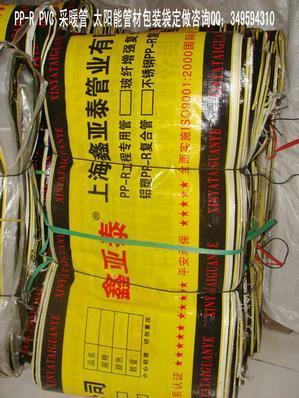 PP-R PVC 采暖管 太阳能管材包装袋定做咨询QQ：349594310
XINYATAIGUANYE
全面实施ISO9001:2000国际
平安环保
★★★★★
玻纤增强复
不锈钢PP-R复合管
PP-R工程专用管
铝塑PP-R复
上海鑫亚泰管业有
鑫亚泰®
品名
规格
颜色
数量
小心轻放 切勿重压
公司
系认证
XINYATAIGUANYE
XINYATAIGUANYE